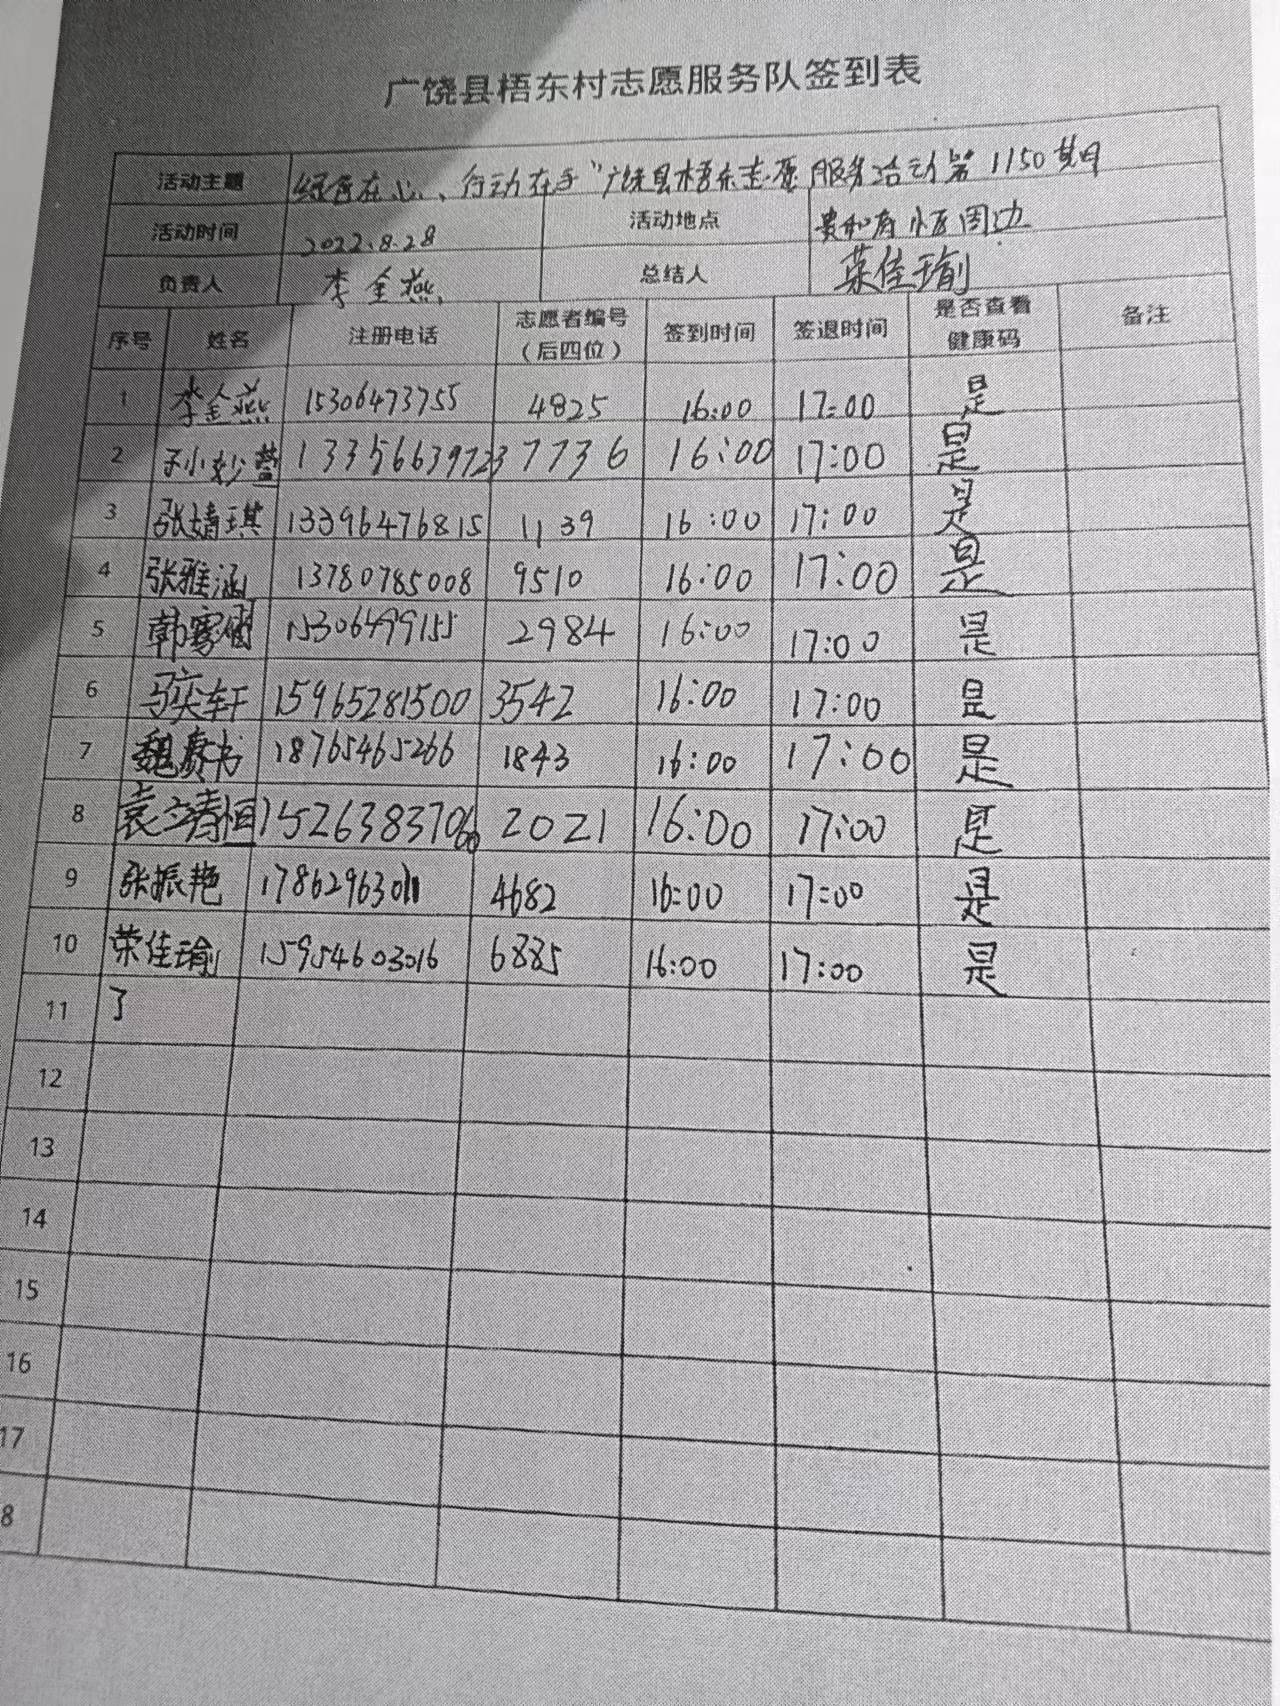 广饶县梧东村志愿服务队签到表
活动主题 绿色在心、行动在手"广饶县梧东志愿服务活动第1150期
活动时间 2022.8.28 活动地点 贵和府小区周边
负责人 李金燕 总结人 荣佳瑜
序号 姓名 注册电话 志愿者编号（后四位） 签到时间 签退时间 是否查看健康码 备注
1 李金燕 15306473755 4825 16:00 17:00 是
2 13356639723 7736 16:00 17:00 是
3 张婧琪 13396476815 1139 16:00 17:00 是
4 张雅涵 13780785008 9510 16:00 17:00 是
5 韩 15306499155 2984 16:00 17:00 是
6 马奕轩 15965281500 3542 16:00 17:00 是
7 魏赓书 18765465266 1843 16:00 17:00 是
8 袁 恒 2021 16:00 17:00 是
9 张振艳 17862963011 4682 16:00 17:00 是
10 荣佳瑜 15954603016 6885 16:00 17:00 是
11 了
12
13
14
15
16
17
8